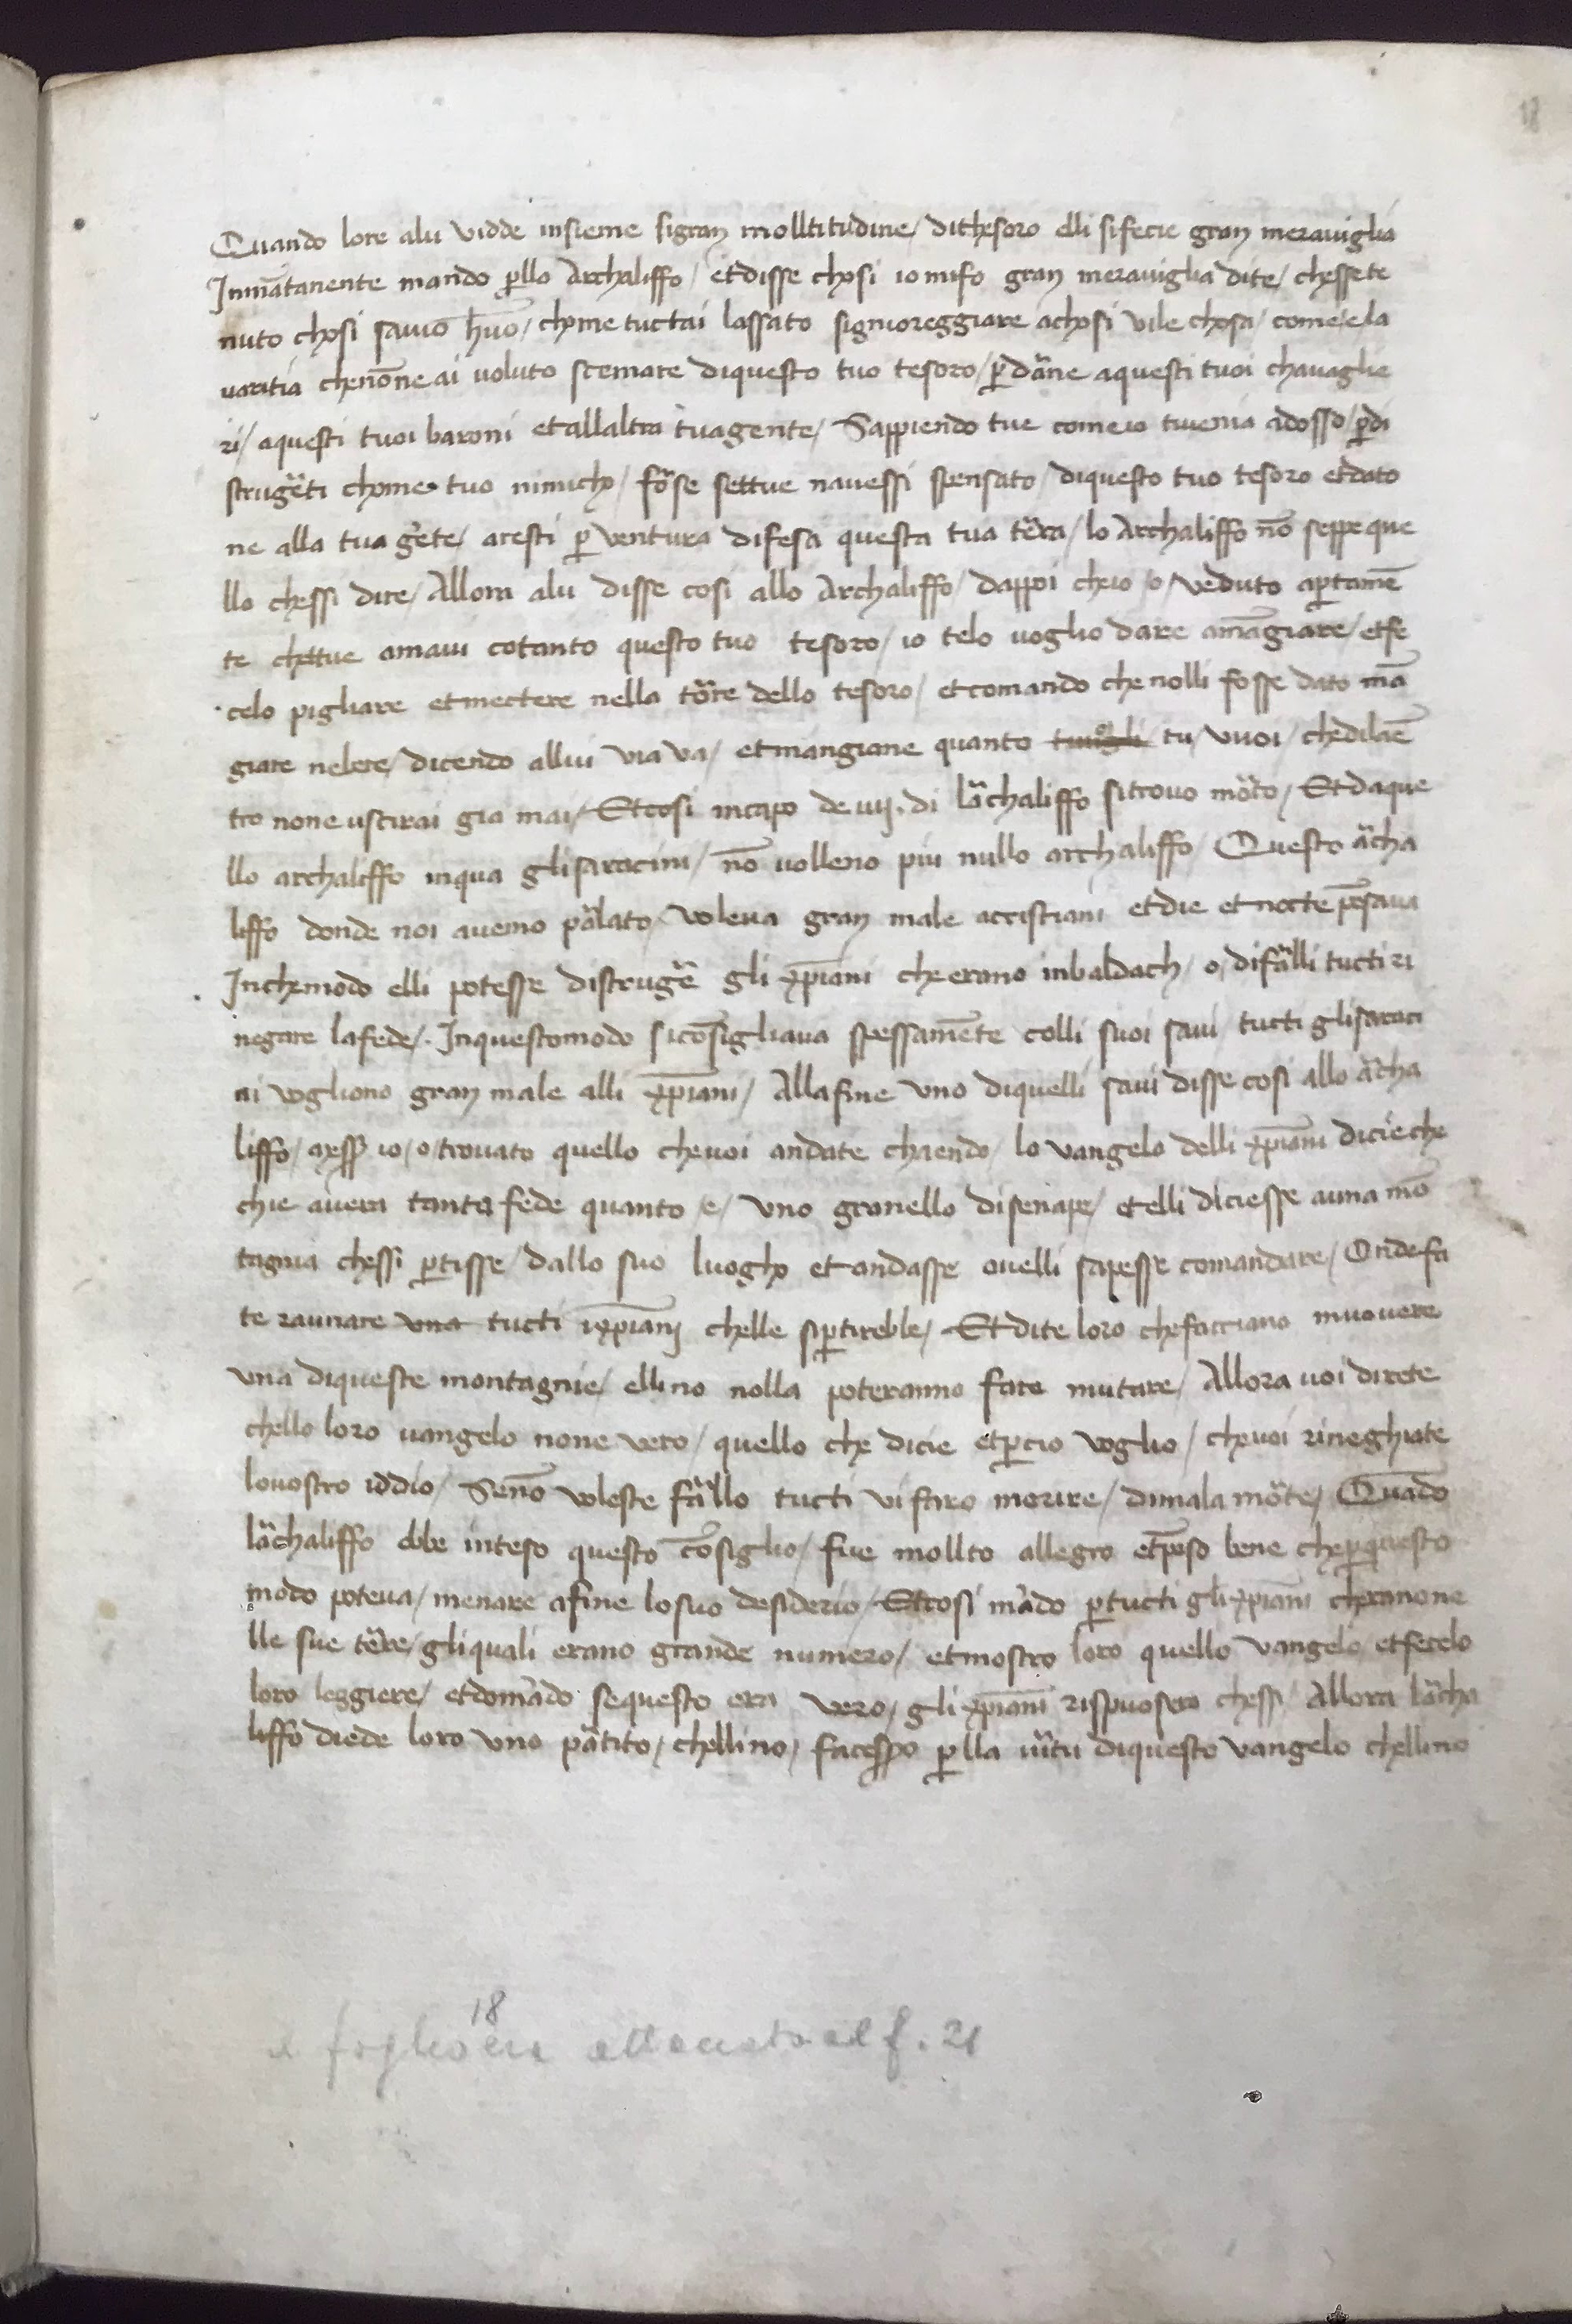 18
Quando lore alu vidde insieme sigran molltitudine / dithesoro elli sifecie gran meraviglia
Inmãtanente mando ꝑllo Archaliffo / etdisse chosi io mifo gran meraviglia dite / chessete
nuto chosi savio huõ / chome tuctai lassato signioreggiare achosi vile chosa / come e la
varitia chenõne ai voluto scemare diquesto tuo tesoro / ꝑ dãne aquesti tuoi chavaglie
ri / aquesti tuoi baroni et allaltra tuagente / Sappiendo tue comeio tivenia adosso / ꝑdi
strugẽti chome tuo nimicho / fõse settue navessi spensato / diquesto tuo tesoro etdato
ne alla tua gẽte / aresti ꝑ ventura difesa questa tua tẽra / lo Archaliffo nõ seppe que
llo chessi dire / Allora alu disse cosi allo Archaliffo / dappoi cheio / o / veduto aꝑtamẽ
te chettue amavi cotanto questo tuo tesoro / io telo voglio dare amãgiare / etfe
celo pigliare etmectere nella tõre dello tesoro / etcomando che nolli fosse dato mã
giare nebere / dicendo allui via va / etmangiane quanto tu / vuoi / chedilaẽ
tro none uscirai gia mai / Etcosi incapo de vij. di lãchaliffo sitrovo mõto / Etdaque
llo archaliffo inqua glisaracini / nõ volleno piu nullo archaliffo / Questo ãcha
liffo donde noi avemo pãlato / voleva gran male accristiani etdie etnocte pẽsava
Inchemodo elli potesse distrugẽ gli xp̃iani che erano inbaldach / o / difãlli tucti ri
negare lafede / . Inquestomodo sicõsigliava spessamẽte colli suoi savi tucti glisaraci
ni vogliono gran male alli xp̃iani / Allafine uno diquelli savi disse cosi allo ãcha
liffo / io / o / trovato quello chevoi andate chaendo / lo vangelo delli xp̃iani dicie che
chie avera tanta fede quanto / e / uno granello disenape / etelli diciesse auna mõ
tagnia chessi ꝑtisse / dallo suo luogho et andasse ovelli sapesse comandare / Ondefa
te raunare una tucti ixp̃ianj chelle siꝑtireble / Etdite loro chefacciano muovere
una diqueste montagnie / ellino nolla poteranno fare mutare / Allora voi direte
chello loro vangelo none vero / quello che dicie etꝑcio voglio / chevoi rineghiate
lovostro iddio / Senõ voleste fãllo tucti vi faro morire / dimala mõte / Quãdo
lãchaliffo ebbe inteso questo cõsiglio / fue mollto allegro etpẽso bene cheꝑquesto
modo poteva / menare afine losuo desiderio / Etcosi mãdo ꝑtucti glixp̃iani cheranone
lle sue tẽre / gliquali erano grande numero / etmostro loro quello vangelo etfecelo
loro leggiere / etdomãdo sequesto era vero / gli xp̃iani rispuosero chessi / Allora lãcha
liffo diede loro uno pãtito / chellino / facessõ ꝑlla vĩtu diquesto vangelo chellino
18
f. 21